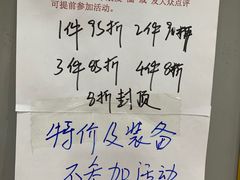 及大众点评
可提前参加活动。
1件95折 2件9折
3件85折 4件8折
8折封顶
特价及装备
不参加活动